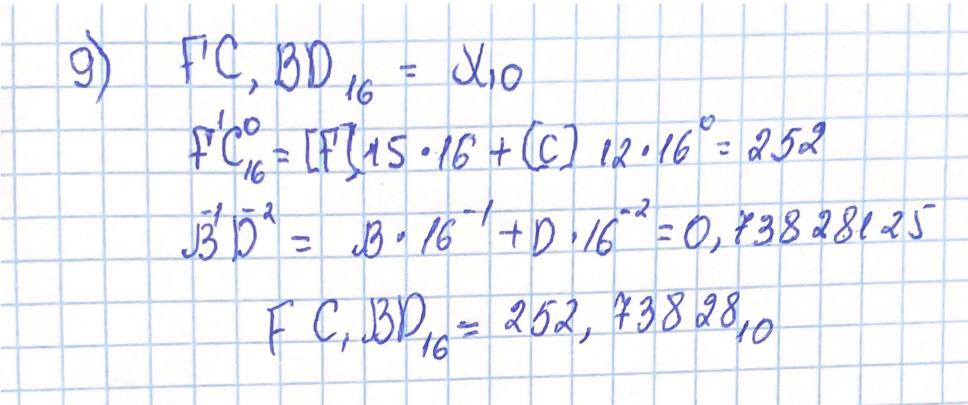 9) FC,BD₁₆ = X₁₀
F¹C⁰₁₆ = [F] 15·16 + [C] 12·16⁰ = 252
B⁻¹D⁻² = B·16⁻¹ + D·16⁻² = 0,73828125
FC,BD₁₆ = 252,73828₁₀